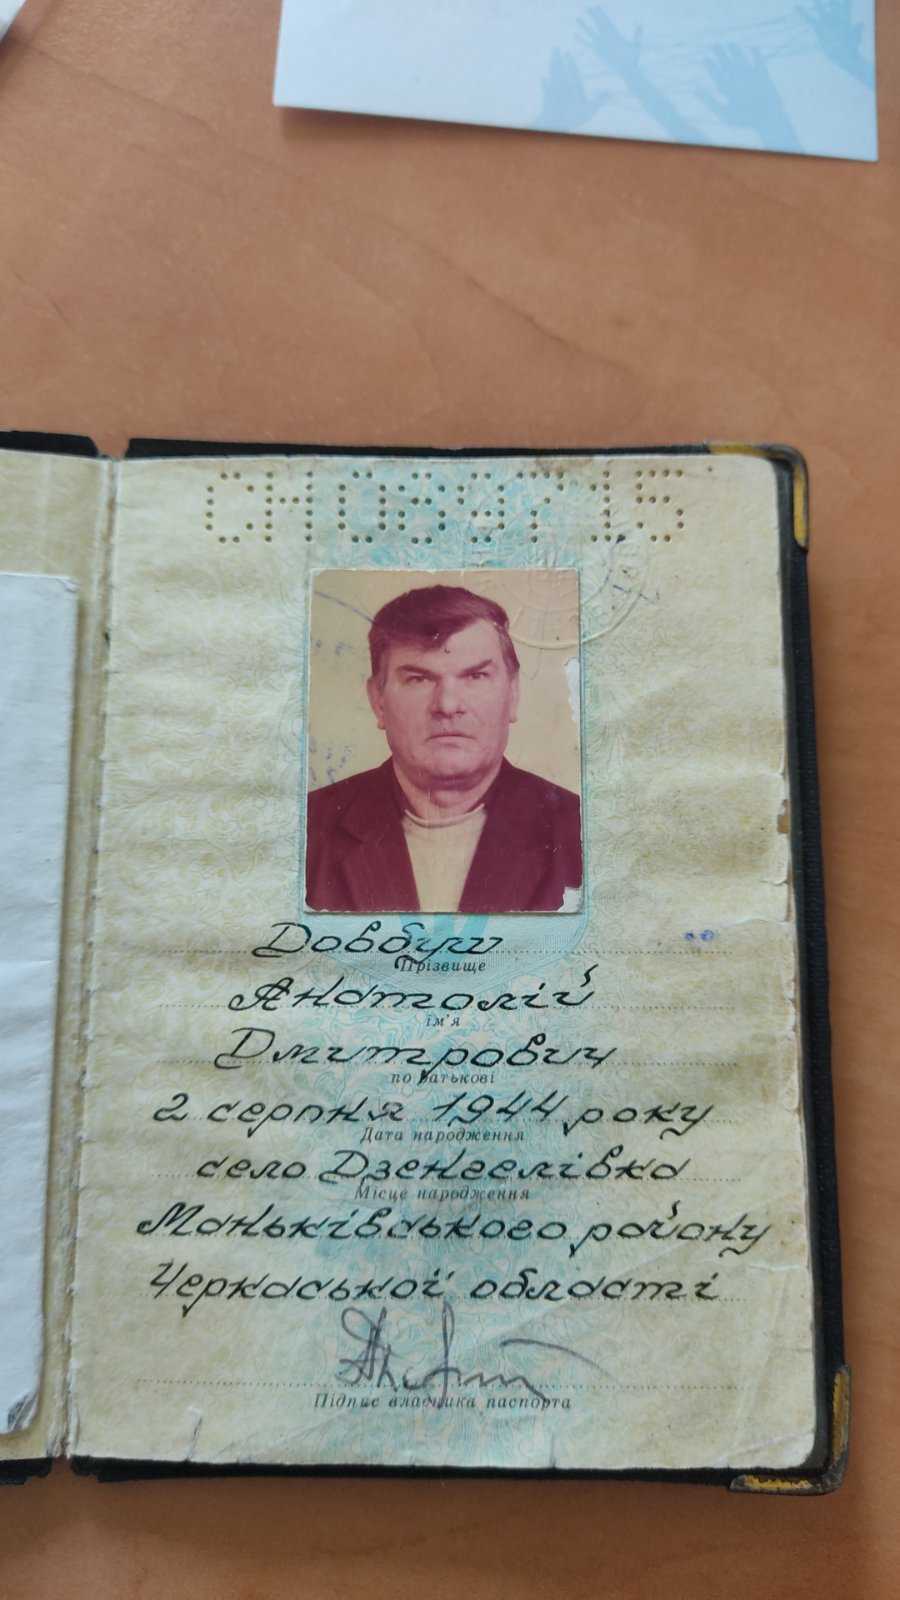 СН089715
Довбуш
Прізвище
Анатолій
ім'я
Дмитрович
по батькові
2 серпня 1944 року
Дата народження
село Дзенгелівка
Місце народження
Маньківського району
Черкаської області
Підпис власника паспорта